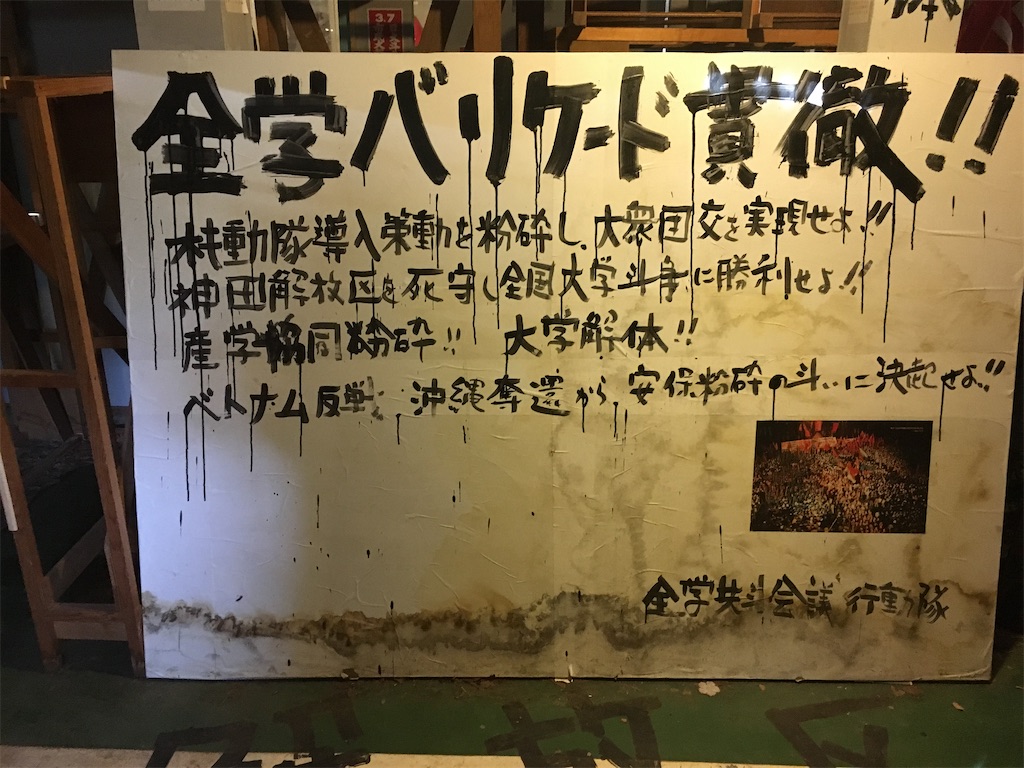 3.7
全学バリケード貫徹!!
機動隊導入策動を粉砕し、大衆団交を実現せよ!!
神田解放区を死守し全国大学斗争に勝利せよ!!
産学協同粉砕!! 大学解体!!
ベトナム反戦、沖縄奪還から、安保粉砕の斗いに決起せよ!!
全学共斗会議 行動隊